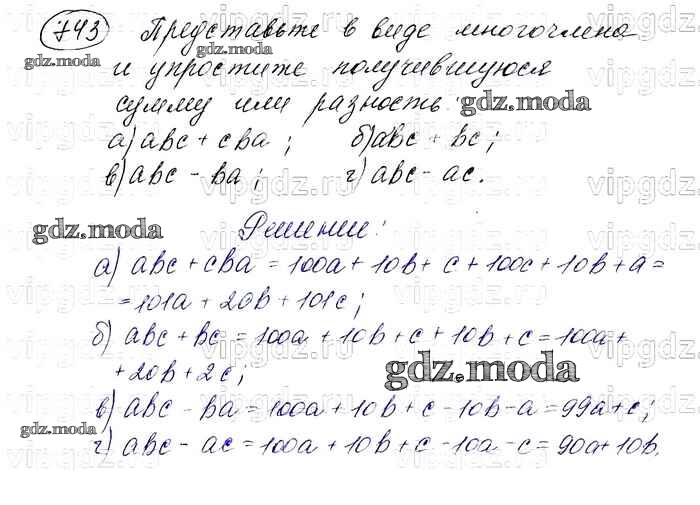 743 Представьте в виде многочлена
и упростите получившуюся
сумму или разность:
а) abc + cba; б) abc + bc;
в) abc - ba; г) abc - ac.
Решение:
а) abc + cba = 100a + 10b + c + 100c + 10b + a =
= 101a + 20b + 101c;
б) abc + bc = 100a + 10b + c + 10b + c = 100a +
+ 20b + 2c;
в) abc - ba = 100a + 10b + c - 10b - a = 99a + c;
г) abc - ac = 100a + 10b + c - 10a - c = 90a + 10b.
gdz.moda
gdz.moda
gdz.moda
gdz.moda
gdz.moda
gdz.moda
vipgdz.ru